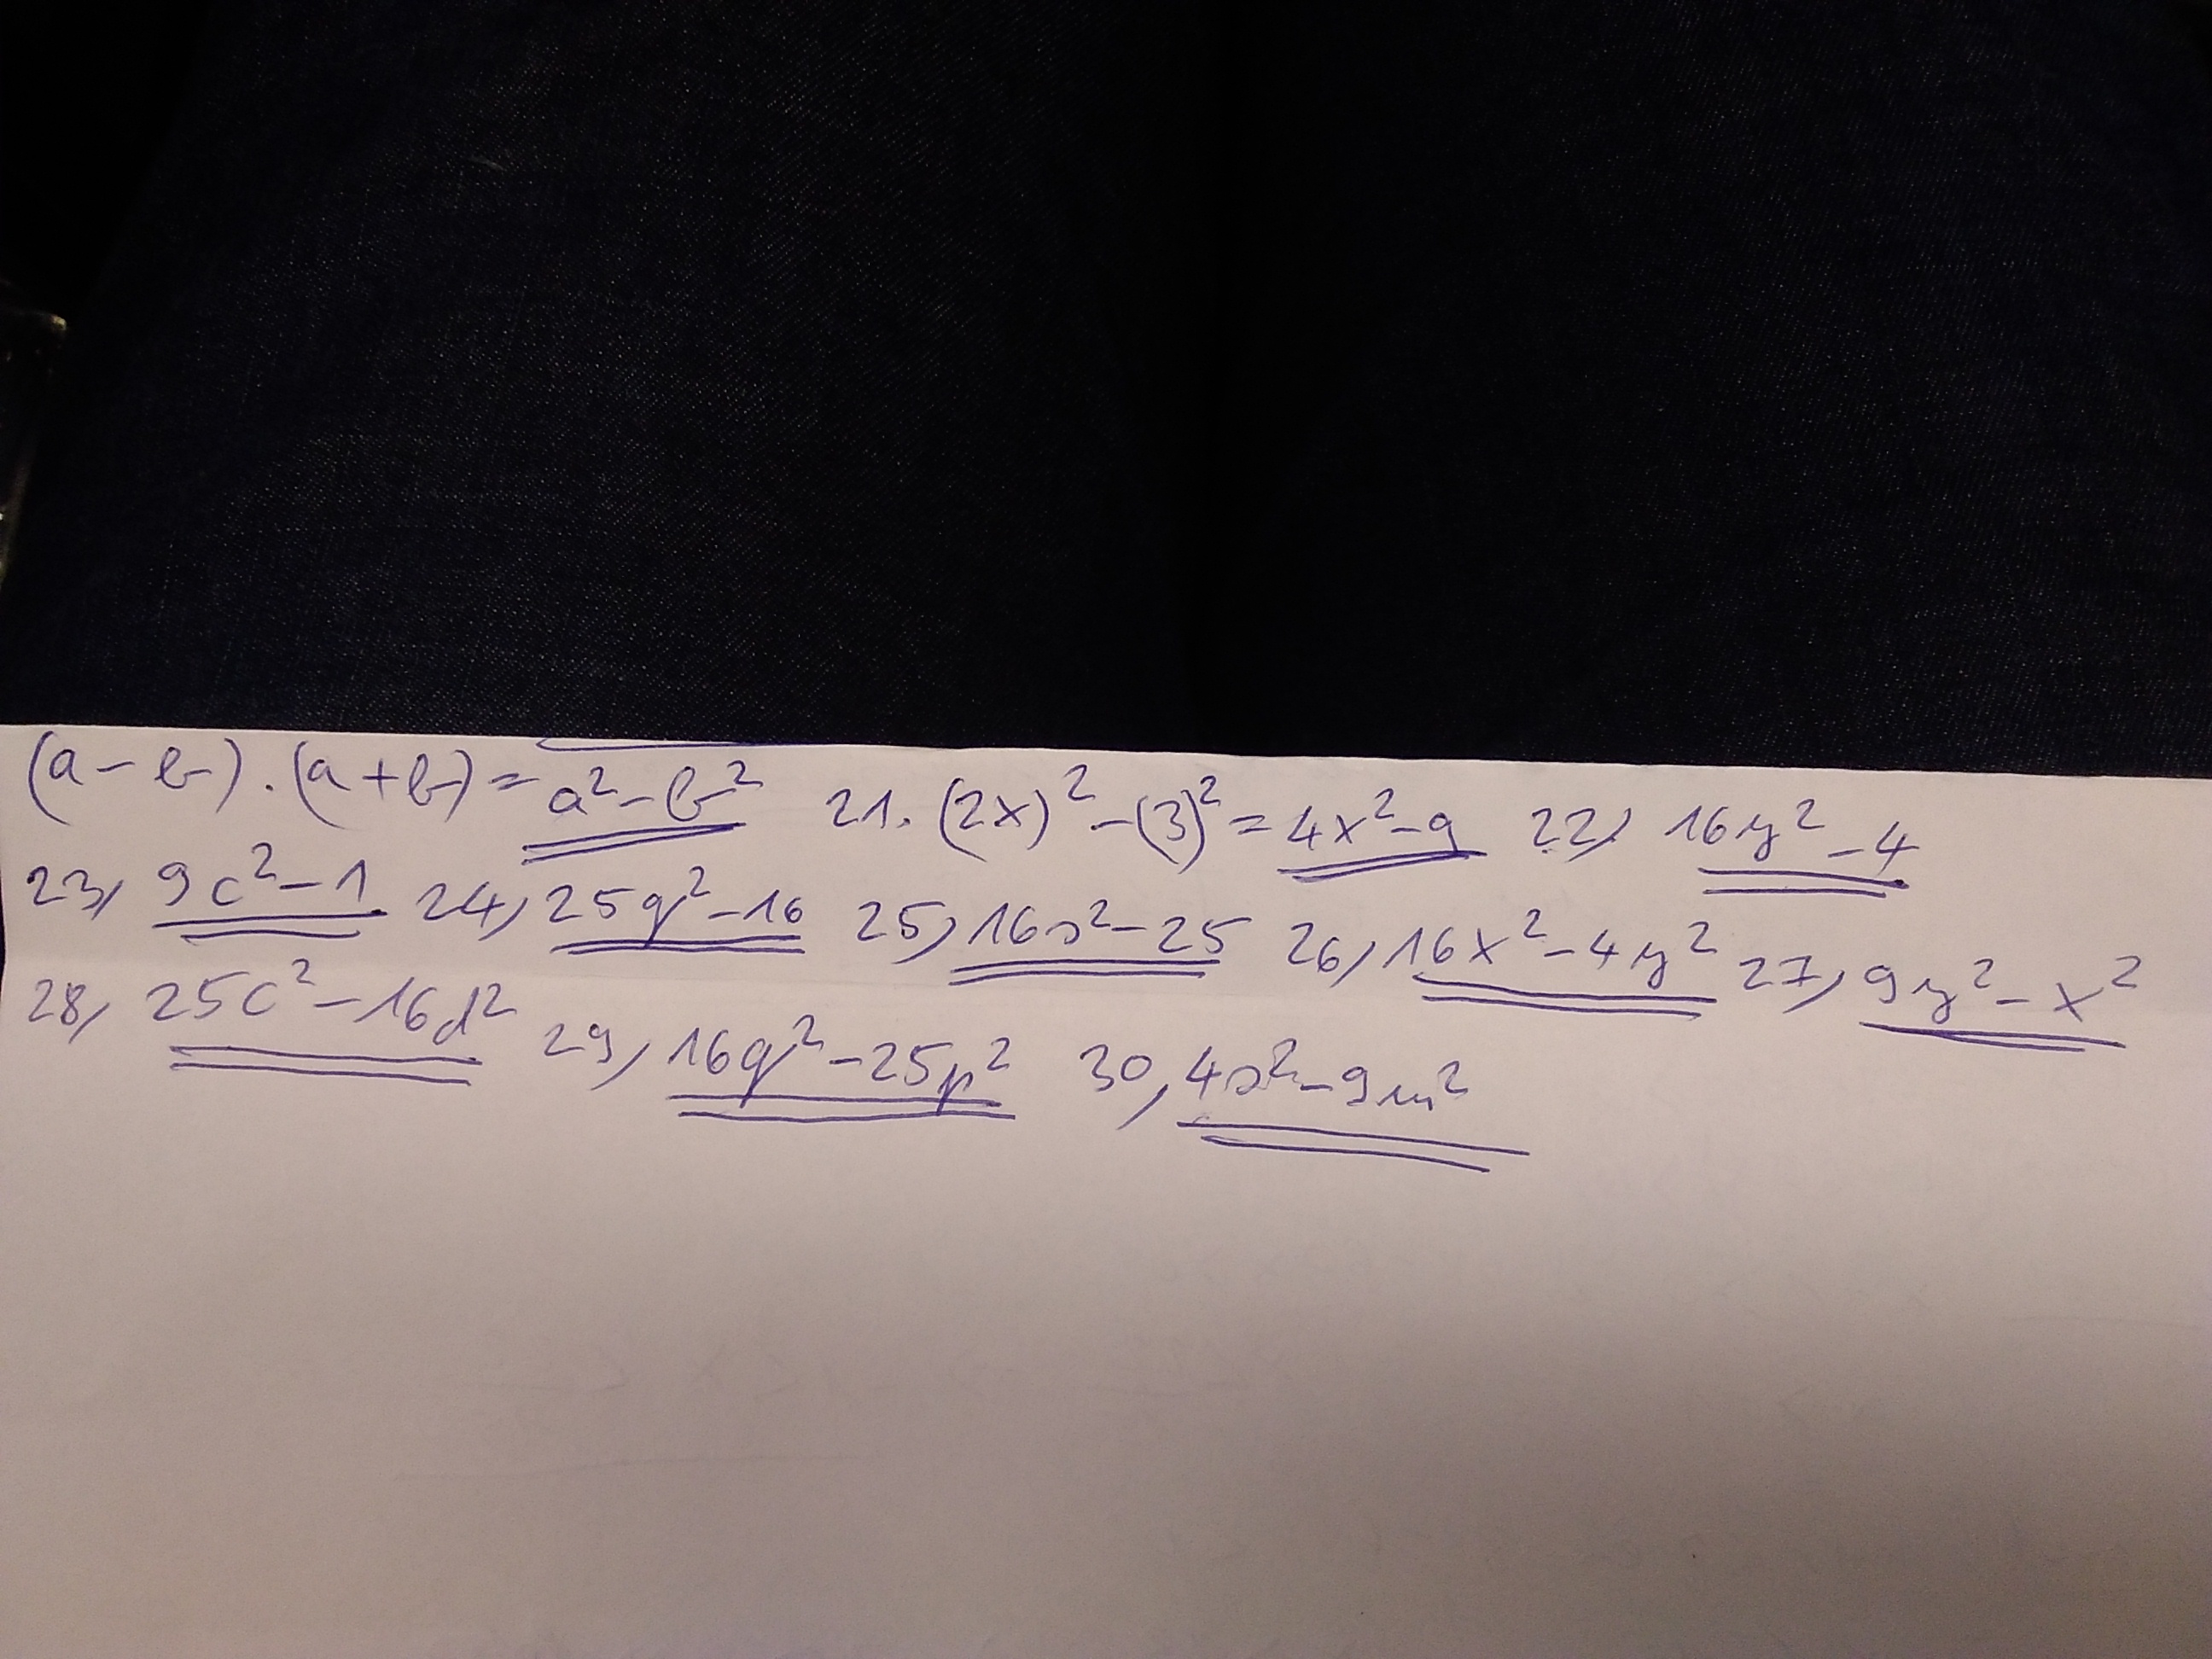 (a-b).(a+b)=a²-b² 21. (2x)²-(3)²=4x²-9 22, 16y²-4
23, 9c²-1 24, 25q²-16 25, 16s²-25 26, 16x²-4y² 27, 9y²-x²
28, 25c²-16d² 29, 16q²-25p² 30, 4s²-9m²